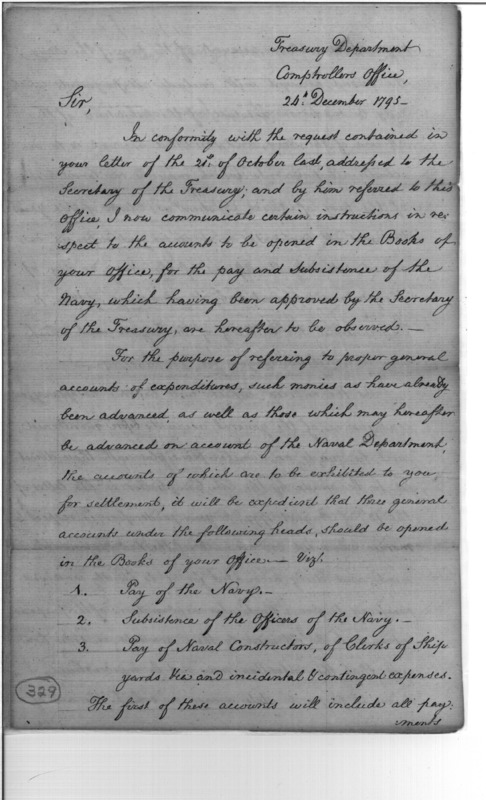 Treasury Department
Comptrollers Office,
24th December 1795—
Sir,
In conformity with the request contained in
your letter of the 21st of October last, addressed to the
Secretary of the Treasury; and by him referred to this
Office, I now communicate certain instructions in re-
spect to the accounts to be opened in the Books of
your Office, for the pay and Subsistence of the
Navy, which having been approved by the Secretary
of the Treasury, are hereafter to be observed.—
For the purpose of referring to proper general
accounts of expenditures, such monies as have already
been advanced, as well as those which may hereafter
be advanced on account of the Naval Department,
the accounts of which are to be exhibited to you,
for settlement, it will be expedient that three general
accounts under the following heads, should be opened
in the Books of your Office.— Vizt.
1. Pay of the Navy.—
2. Subsistence of the Officers of the Navy.—
3. Pay of Naval Constructors, of Clerks of Ship
yards &ca and incidental & contingent expenses.
329
The first of these accounts will include all pay-
ments